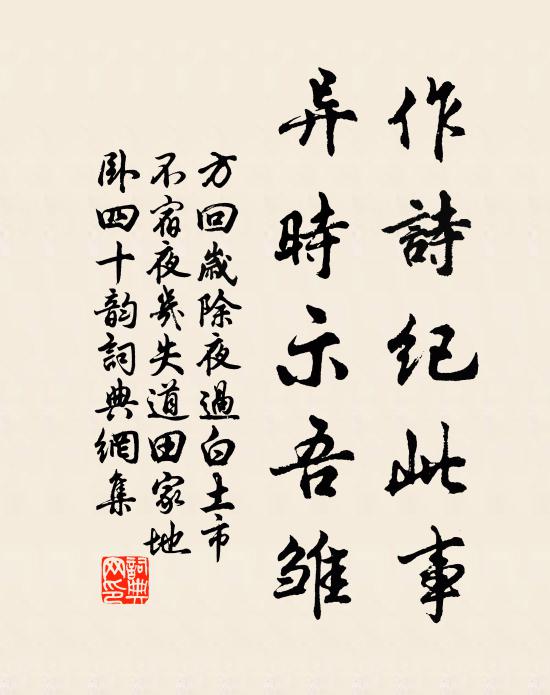 作詩纪此事
异時示吾雏
方回歲除夜過白土市
不宿夜幾失道田家地
卧四十韵詞典網集
詞典
网印